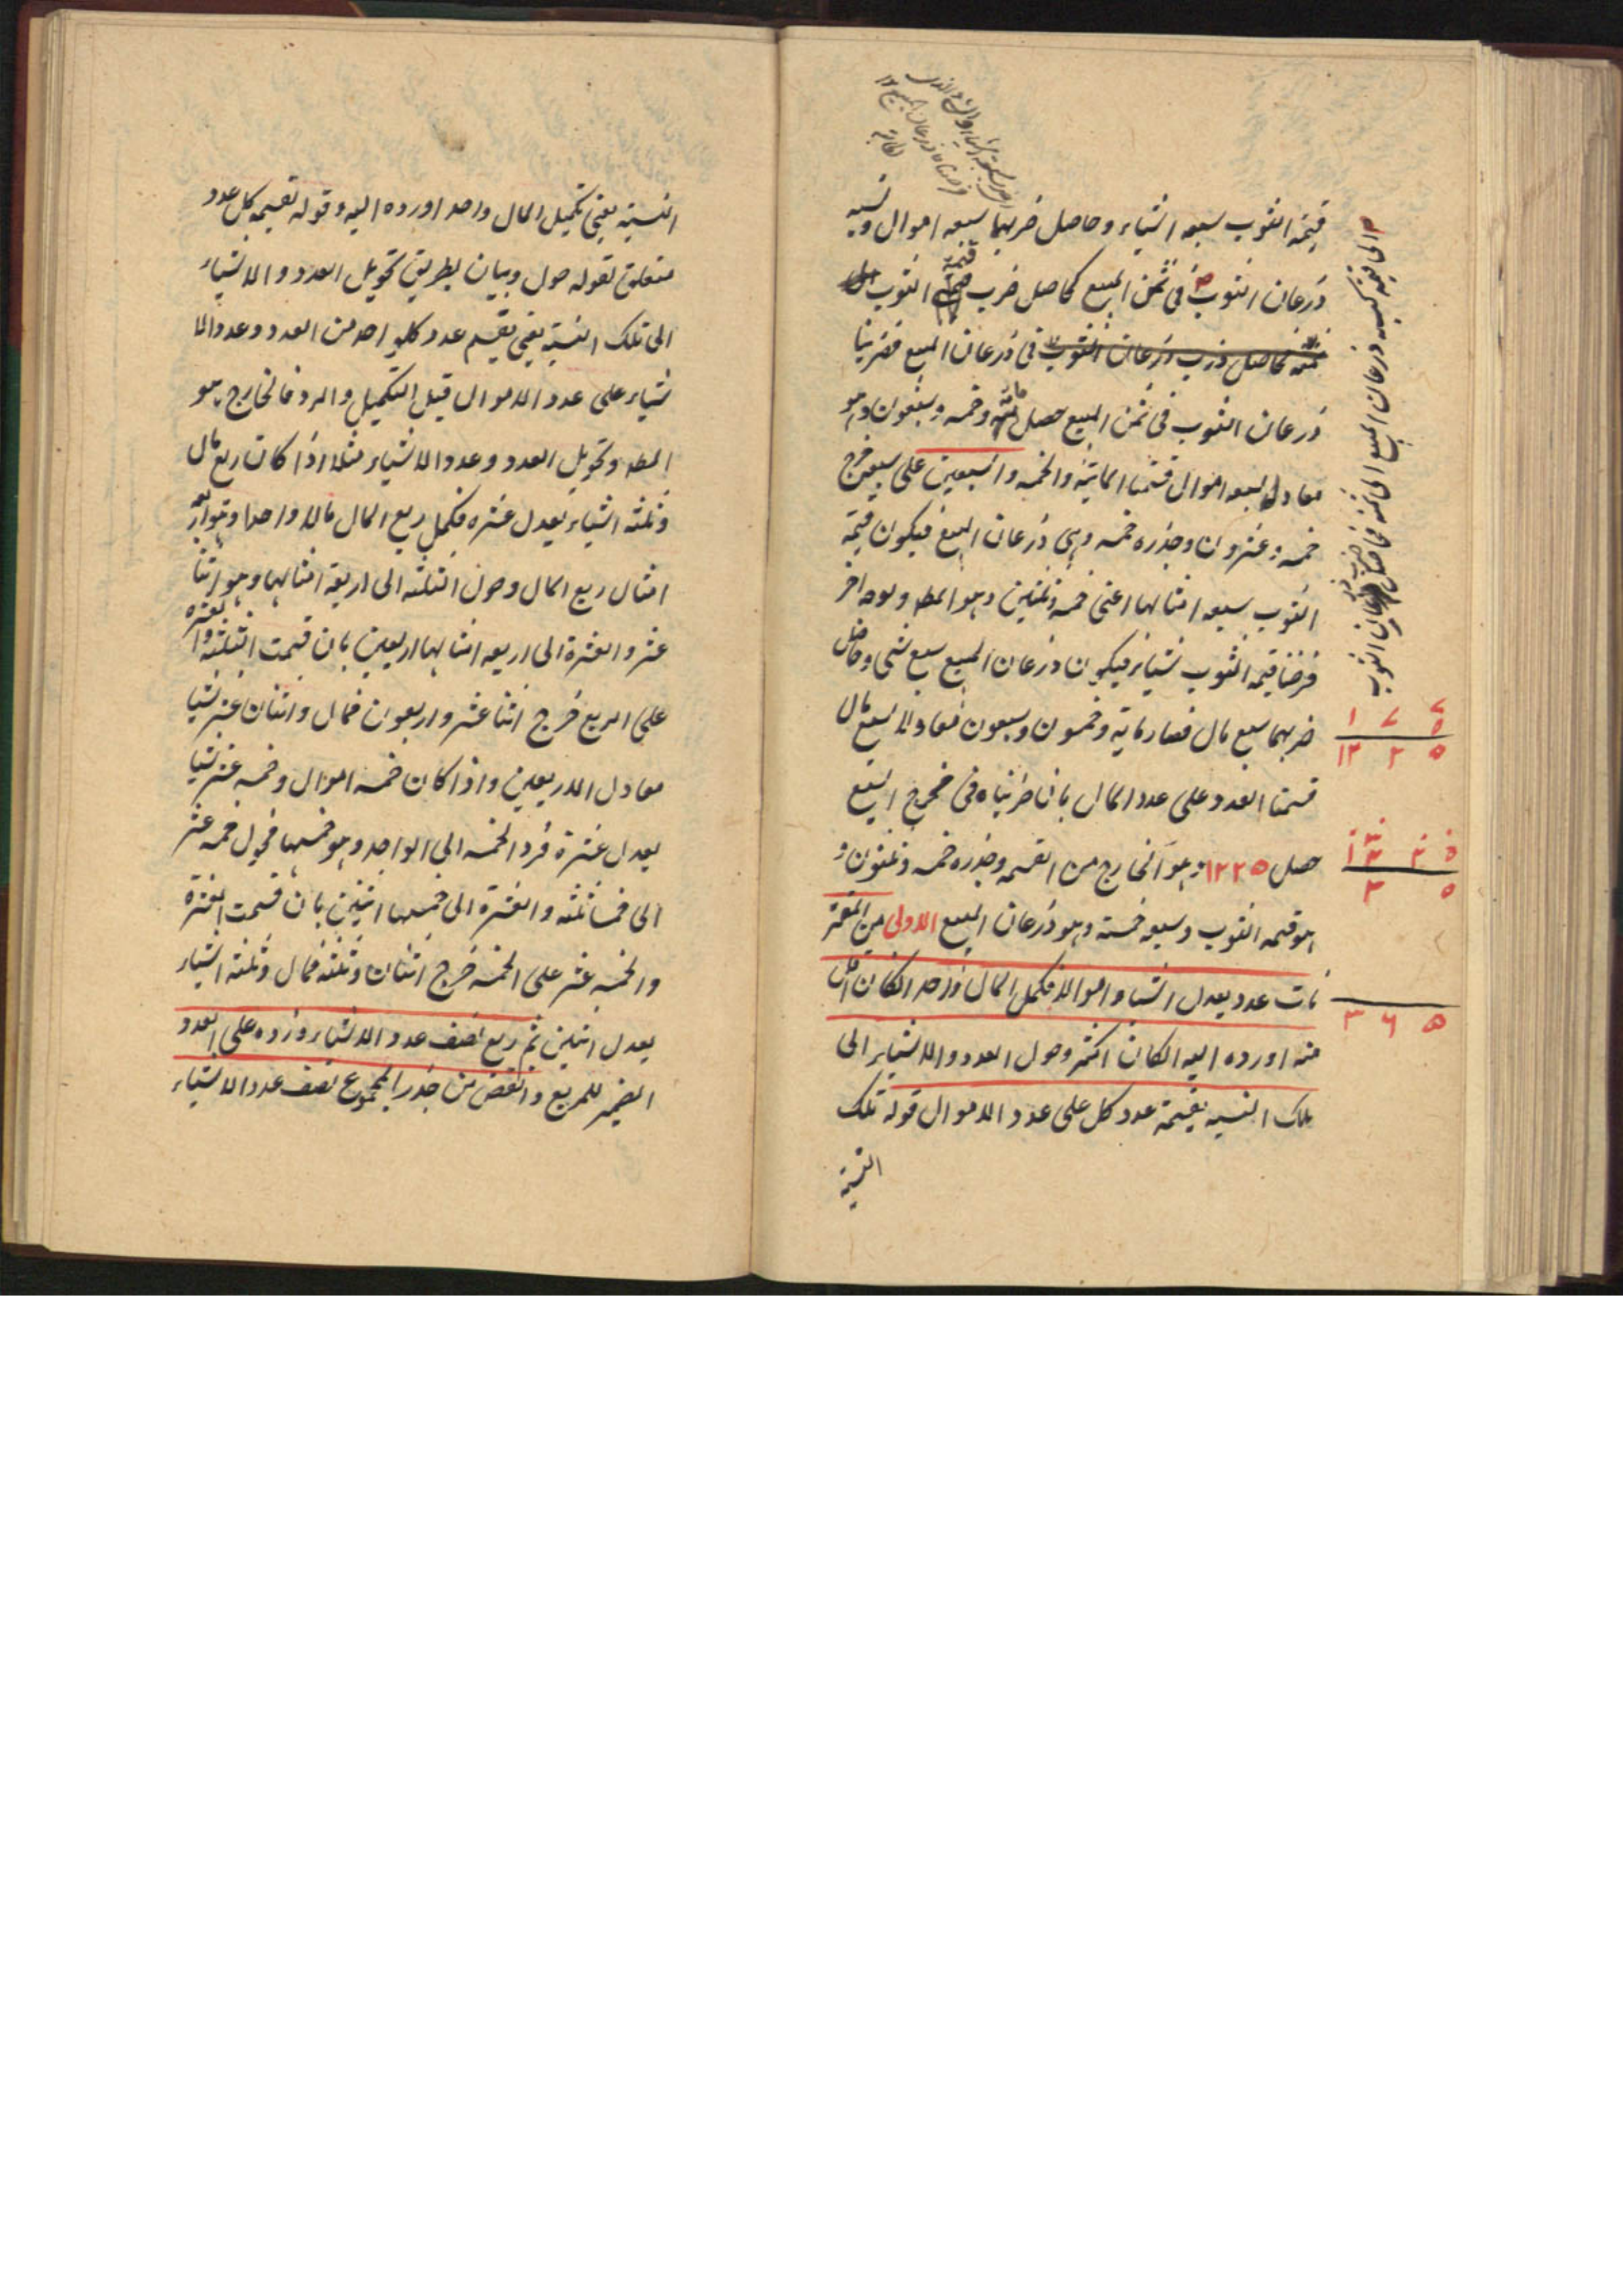 قيمة الثوب سبعه اشياء وحاصل ضربهما سبعه اموال ونسبه
ذرعان الثوب في ثمن المبيع كحاصل ضرب قيمة الثوب
ثمنه كحاصل ضرب ذرعان الثوب في ذرعان المبيع فضربنا
ذرعان الثوب في ثمن المبيع حصل مائة وخمسه وسبعون وهو
معادل لسبعه اموال قسمنا المائة والخمسه والسبعين على سبعه خرج
خمسه وعشرون وجذره خمسه وهى ذرعان المبيع فيكون قيمة
الثوب سبعه امثالها اعنى خمسه وثلثين وهو المط وبوجه اخر
فرضنا قيمة الثوب شياء فيكون ذرعان المبيع سبع شئ وحاصل
ضربهما سبع مال فصار مائه وخمسون وسبعون معادلا لسبع مال
قسمنا العدد على عدد المال بان ضربناه في مخرج السبع
حصل ١٢٢٥ وهو الخارج من القسمه وجذره خمسه وثلثون و
هو قيمه الثوب وسبعه خمسة وهو ذرعان المبيع الاولى من المقتر
نات عدد يعدل اشياء واموالا فكمل المال واحدا انكان اقل
منه اورده اليه انكان اكثر وحول العدد والاشياء الى
تلك النسبه بقسمة عدد كل على عدد الاموال قوله تلك
النسبة
الى قيمة كنسبه ذرعان المبيع الى ثمنه فحاصل ضرب ذرعان الثوب
١ ٧ ٥
٧
١٢ ٢ ٥
٣ ٥
٣ ٤ ٥
النسبة يعني تكميل المال واحدا ورده اليه وقوله تقسيمه كل عدد
متعلق بقوله حول وبيان لطريق تحويل العدد والاشياء
الى تلك النسبة يعني تقسيم عدد كل واحد من العدد وعدد الا
شياء على عدد الاموال قبل التكميل والرد فالخارج هو
المط وتحويل العدد وعدد الاشياء مثلا اذا كان ربع مال
وثلثه اشياء يعدل عشره فكمل ربع المال مالا واحدا وهو اربعه
امثال ربع المال وحول الثلثه الى اربعة امثالها وهو اثنا
عشر والعشرة الى اربعه امثالها اربعين بان قسمت الثلثه والعشره
على الربع خرج اثنا عشر واربعون فمال واثنان عشر شيا
معادل الاربعين واذا كان خمسه اموال وخمسه عشر شيا
يعدل عشرة فرد الخمسه الى الواحد وهو خمسها فحول خمسه عشر
الى خمسها ثلثه والعشره الى خمسها اثنين بان قسمت العشرة
والخمسه عشر على الخمسه خرج اثنان وثلثه فمال وثلثه اشياء
يعدل اثنين ثم ربع نصف عدد الاشياء وزده على العدد
الضمير للمربع وانقص من جذر المجموع نصف عدد الاشياء